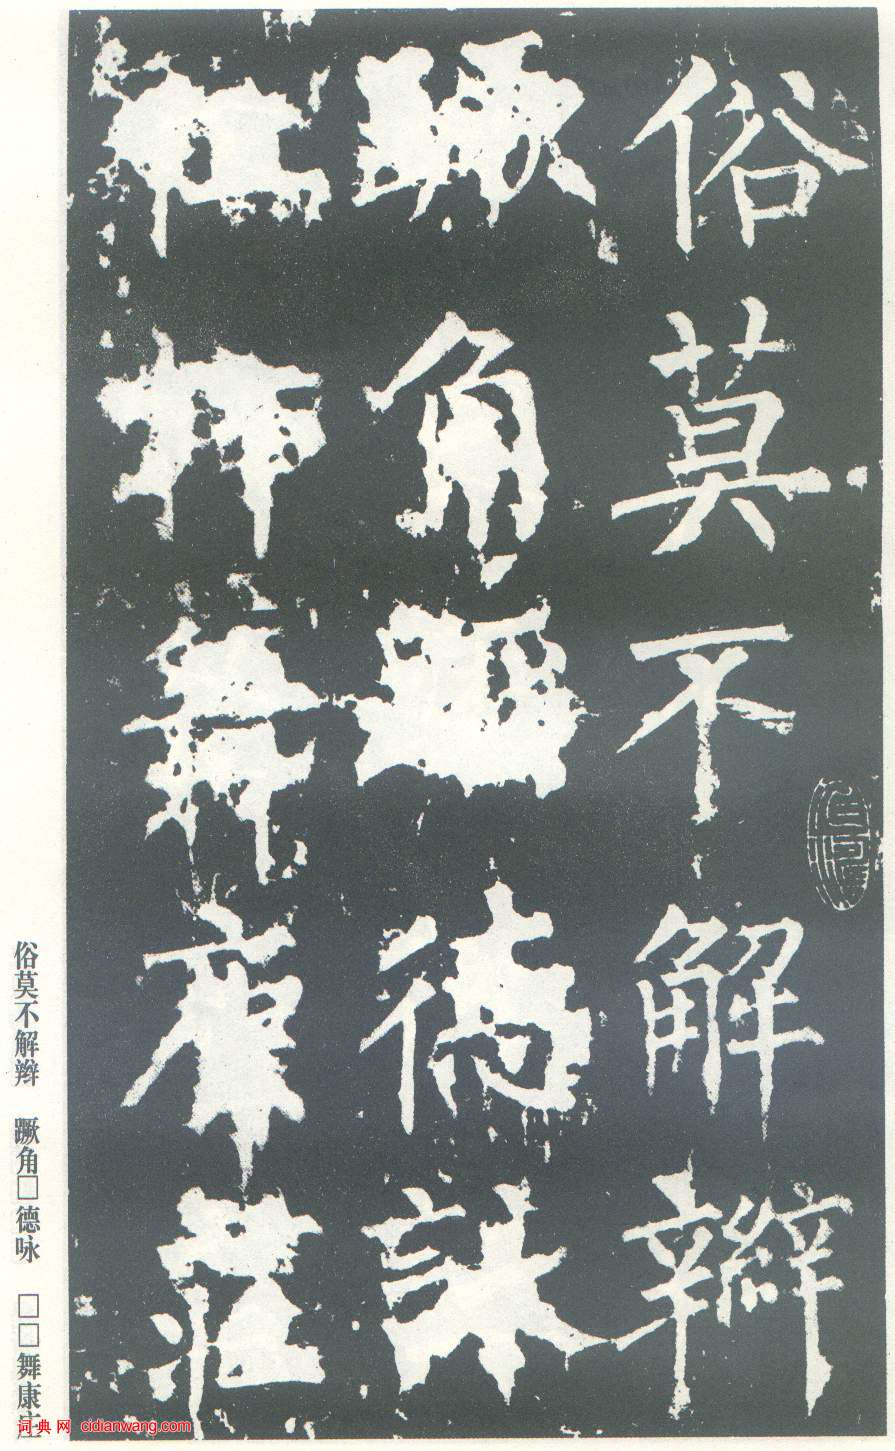 俗莫不解辮
角
德詠
舞康莊
俗莫不解辫 蹶角□德咏 □□舞康庄
词典网 cidianwang.com